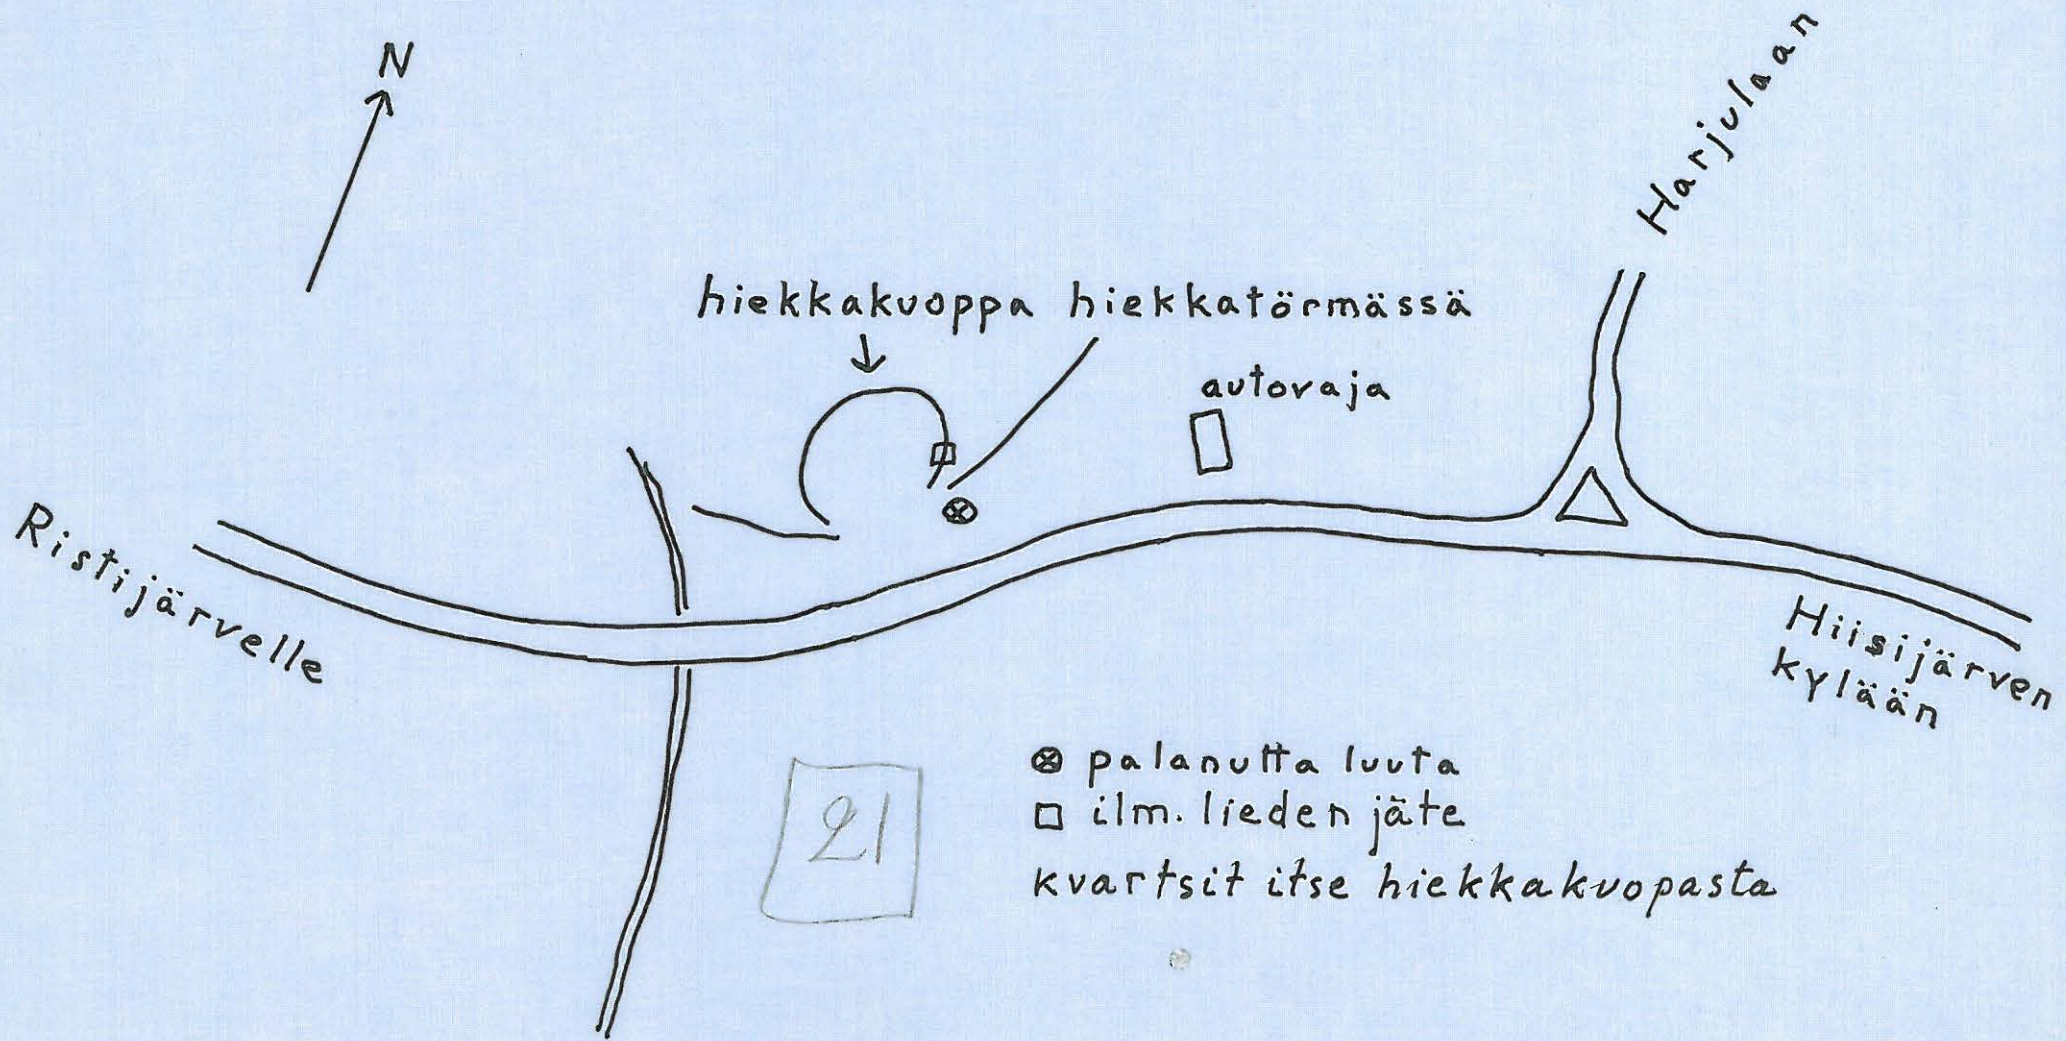 N
Harjulaan
hiekkakuoppa hiekkatörmässä
autovaja
Ristijärvelle
Hiisijärven
kylään
palanutta luuta
ilm. lieden jäte
kvartsit itse hiekkakuopasta
21